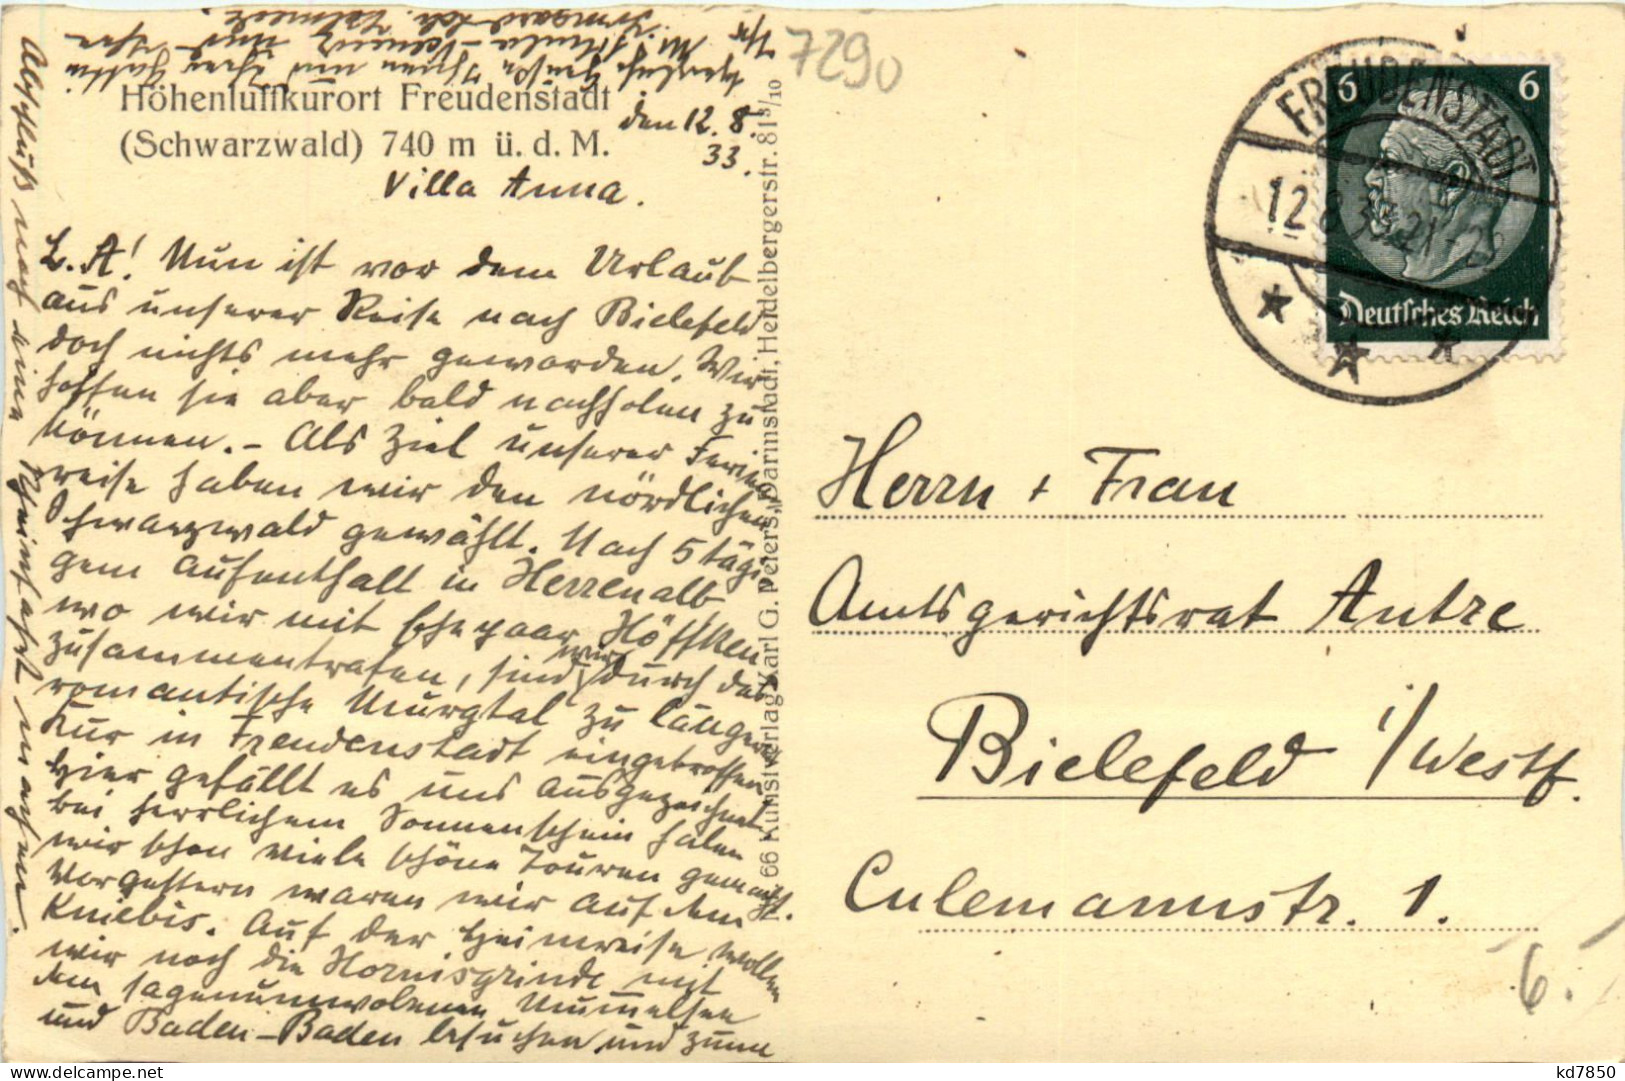 Höhenluftkurort Freudenstadt
(Schwarzwald) 740 m ü. d. M.
den 12. 8.
33.
Villa Anna.
L. A! Nun ist vor dem Urlaub
aus unserer Reise nach Bielefeld
doch nichts mehr geworden. Wir
hoffen sie aber bald nachholen zu
können. – Als Ziel unserer Ferien-
reise haben wir den nördlichen
Schwarzwald gewählt. Nach 5 tägi-
gem Aufenthalt in Herrenalb
wo wir mit Ehepaar Höffken
zusammentrafen, sind wir durch das
romantische Murgtal zu längerer
Kur in Freudenstadt eingetroffen.
Hier gefällt es uns ausgezeichnet,
bei herrlichem Sonnenschein haben
wir schon viele schöne Touren gemacht.
Vorgestern waren wir auf dem
Kniebis. Auf der Heimreise wollen
wir noch die Hornisgrinde mit
dem sagenumwobenen Mummelsee
und Baden-Baden besuchen und zum
Abschluß noch eine Rheinfahrt machen.
Herzliche Grüße Ihnen und Ihrer Gattin
Ihr
und
66 Kunstverlag Karl G. Peters, Darmstadt, Heidelbergerstr. 81 3/10
7290
FREUDENSTADT
12. 8. 33. 21-22
6 6
Deutsches Reich
Herrn + Frau
Amtsgerichtsrat Antze
Bielefeld i/Westf.
Culemannstr. 1.
6.
kd7850